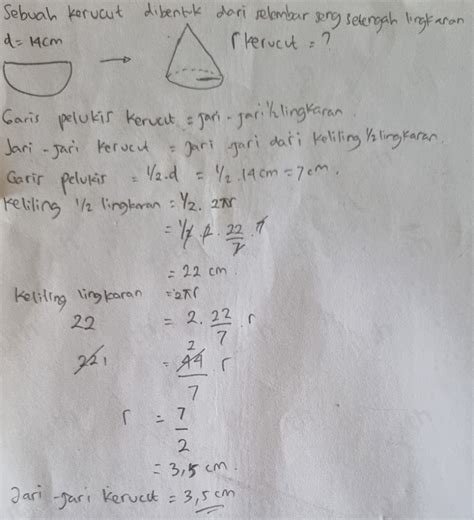 Sebuah kerucut dibentuk dari selembar seng setengah lingkaran
d = 14cm
r kerucut = ?
Garis pelukis kerucut = jari-jari ½ lingkaran.
Jari-jari kerucut = jari jari dari keliling ½ lingkaran.
Garis pelukis = ½.d = ½.14cm = 7cm.
Keliling ½ lingkaran = ½. 2πr
= ½.2.22/7.7
= 22 cm.
Keliling lingkaran = 2πr
22 = 2.22/7.r
22 1 = 2 44/7 r
r = 7/2
= 3,5 cm.
Jari-jari kerucut = 3,5 cm